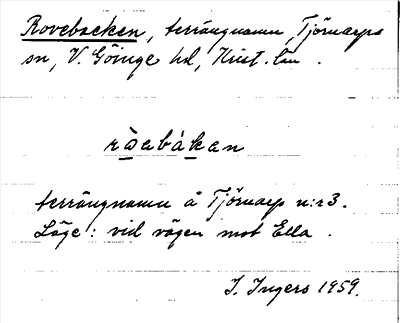 Rovebacken, terrängnamn, Tjörnarps
sn, V. Göinge hd, Krist. län.
ràvabákan
terrängnamn å Tjörnarp n:r 3.
Läge: vid vägen mot Ella.
I. Ingers 1959.